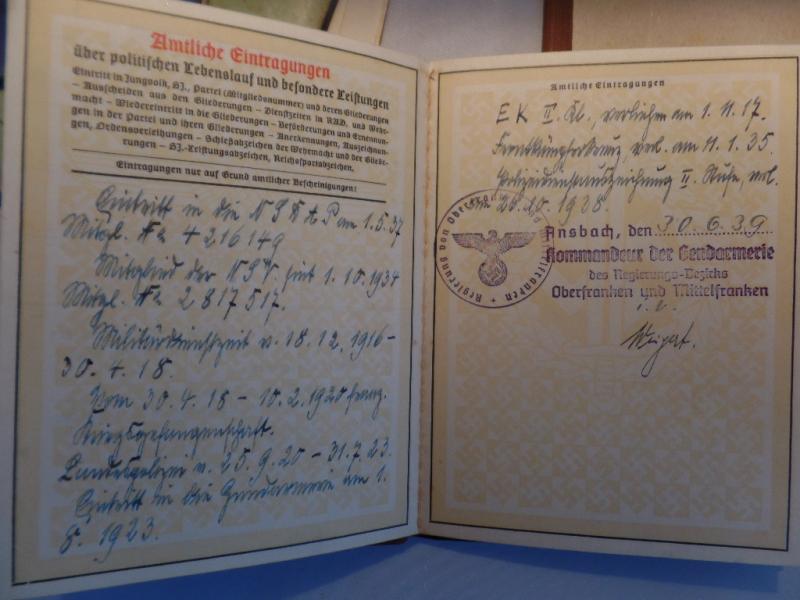 Amtliche Eintragungen
über politischen Lebenslauf und besondere Leistungen
Eintritt in Jungvolk, HJ., Partei (Mitgliedsnummer) und deren Gliederungen
– Ausscheiden aus den Gliederungen – Dienstzeiten in RAD. und Wehr-
macht – Wiedereintritt in die Gliederungen – Beförderungen und Ernennun-
gen in der Partei und ihren Gliederungen – Anerkennungen, Auszeichnun-
gen, Ordensverleihungen – Schießabzeichen der Wehrmacht und der Gliede-
rungen – HJ.-Leistungsabzeichen, Reichssportabzeichen,
Eintragungen nur auf Grund amtlicher Bescheinigungen!
Eintritt in die NSDAP am 1.5.37
Mitgl. No 4216149
Mitglied der NSV seit 1.10.1934
Mitgl. No 2817517.
Militärdienstzeit v. 18.12.1916–
30.4.18.
Vom 30.4.18 – 10.2.1920 franz.
Kriegsgefangenschaft.
Landespolizei v. 25.9.20 – 31.7.23.
Eintritt in die Gendarmerie am 1.
8.1923.
Amtliche Eintragungen
EK II. Kl., verliehen am 1.11.17.
Frontkämpferkreuz, verl. am 11.1.35.
Polizeidienstauszeichnung II. Stufe, verl.
am 26.10.1938.
Regierung von Oberfranken und Mittelfranken
Ansbach, den 30.6.39
Kommandeur der Gendarmerie
des Regierungs-Bezirks
Oberfranken und Mittelfranken